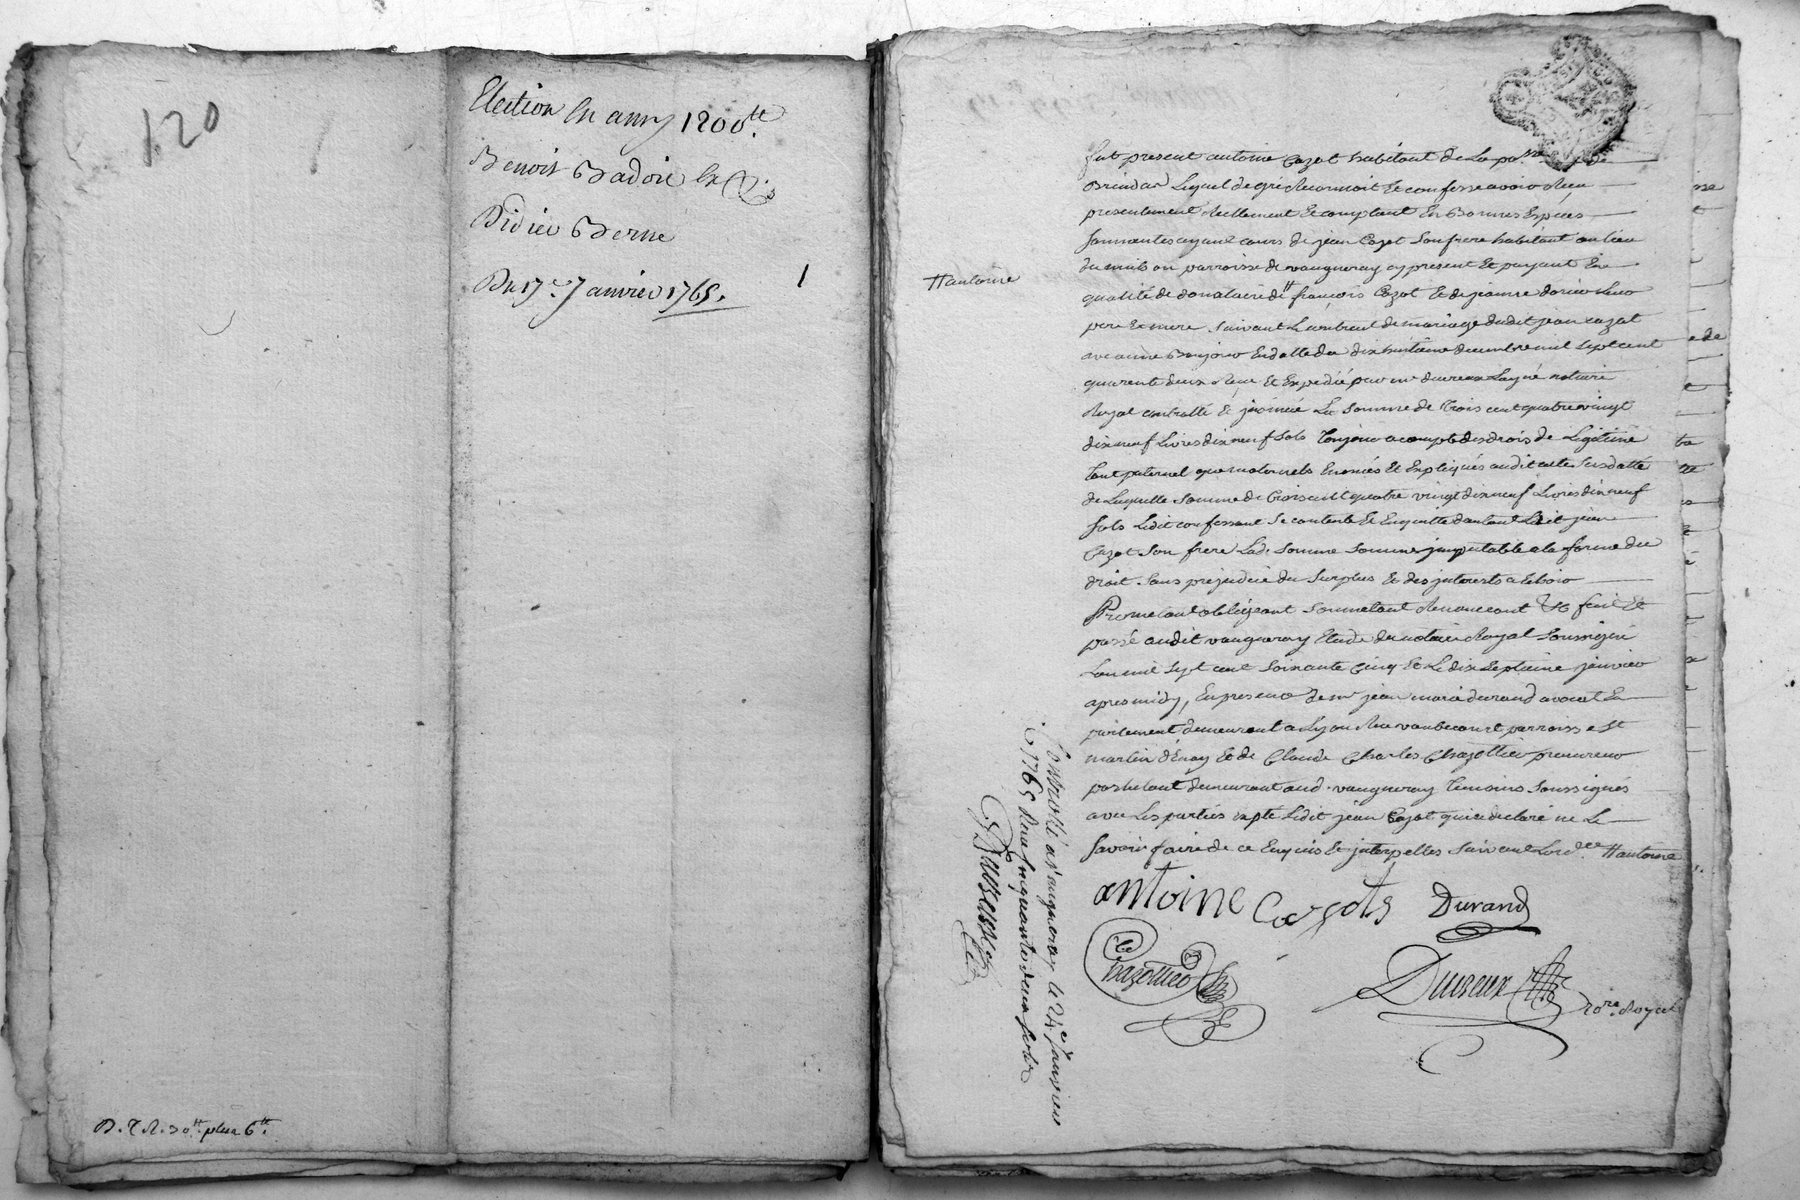 120
Election en amy 1200tt.
Benoit Badoil &
Didier Berne
Du 17e Janvier 1765.
1
D. T. R. 30tt. plus 6tt.
fut present antoine Cazot habitant de La pa.sse de
Brindas Lequel de gré Reconnoit Et confesse avoir Reçu
presentement Reellement Et comptant En Bonnes Espèces
sonnantes ayant cours de jean Cazot Son frere habitant au lieu
du parroisse de vaugneray cy present Et payant En
qualité de donataire de # françois Cazot Et de jeanne
pere Et mere Suivant Le contract de mariage dudit jean cazot
avec anne En datte du dix huitième decembre mil Sept cent
quarente deux Reçu Et Expedié par me duvieux Layné notaire
Royal controllé Et jnsinué La Somme de Trois cent quatre vingt
dix neuf Livres dix neuf Sols Toujour a compte des drois de Legitime
tant paternel que maternels Enoncés Et Expliqués audit acte Susdatté
de Laquelle Somme de trois cent quatre vingt dix neuf Livres dix neuf
Sols Ledit confessant Se contente Et En quitte d'autant Ledit jean
Cazot Son frere Lad. Somme Somme jmputable a la forme du
droit. Sans prejudice du Surplus Et des jnterests a Echoir
Promettant obligeant Soumetant Renonceant &c fait Et
passé audit vaugneray Etude du notaire Royal Soussigné
L'an mil Sept cent Soixante Cinq Et Le dix Septieme janvier
apres midy, En presence de mr jean marie durand avocat En
parlement demeurant a Lyon Rue vaubecourt parroisse St
martin d'Enay Et de Claude Charles Chazottier procureur
postulant demeurant aud. vaugneray Temoins Soussignés
avec Les parties Exepté Ledit jean Cazot qui a declaré ne Le
Savoir faire de ce Enquis Et jnterpellés Suivant Lord.ce # antoine
# antoine
antoine Cazots Durand
Chazottier
Duvieux
no.re Royal
Controllé a Vaugneray le 24e Janvier
1765 Reçu Cinquante deux sols